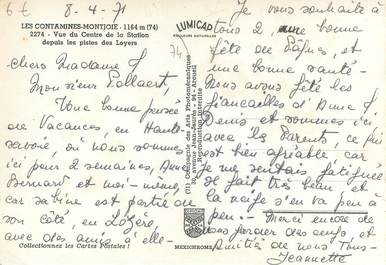 6€ 8-4-71
LES CONTAMINES-MONTJOIE - 1164 m (74)
2274 - Vue du Centre de la Station
depuis les pistes des Loyers
Chers Madame et
Monsieur Pollaert.
Une bonne pensée
de Vacances, en Haute-
Savoie, où nous sommes
ici pour 2 semaines, Anne
Bernard et moi-même,
car Sabine est partie de
son côté, en Lozère
avec des amis à elle-
Collectionnez les Cartes Postales !
LUMICAP
COULEURS NATURELLES
74
Reproduction interdite
MEXICHROME
Je vous souhaite à
tous 2, une bonne
fête de Pâques, et
une bonne santé-
Nous avons fêté les
fiançailles d'Anne et
Denis et sommes ici
avec les Parents, ce qui
est bien agréable, car
je me sentais fatiguée
Il fait très beau et
la neige s'en va peu à
peu - Merci encore de
nous garder des oeufs, et
Amitiés de nous Tous-
Jeannette